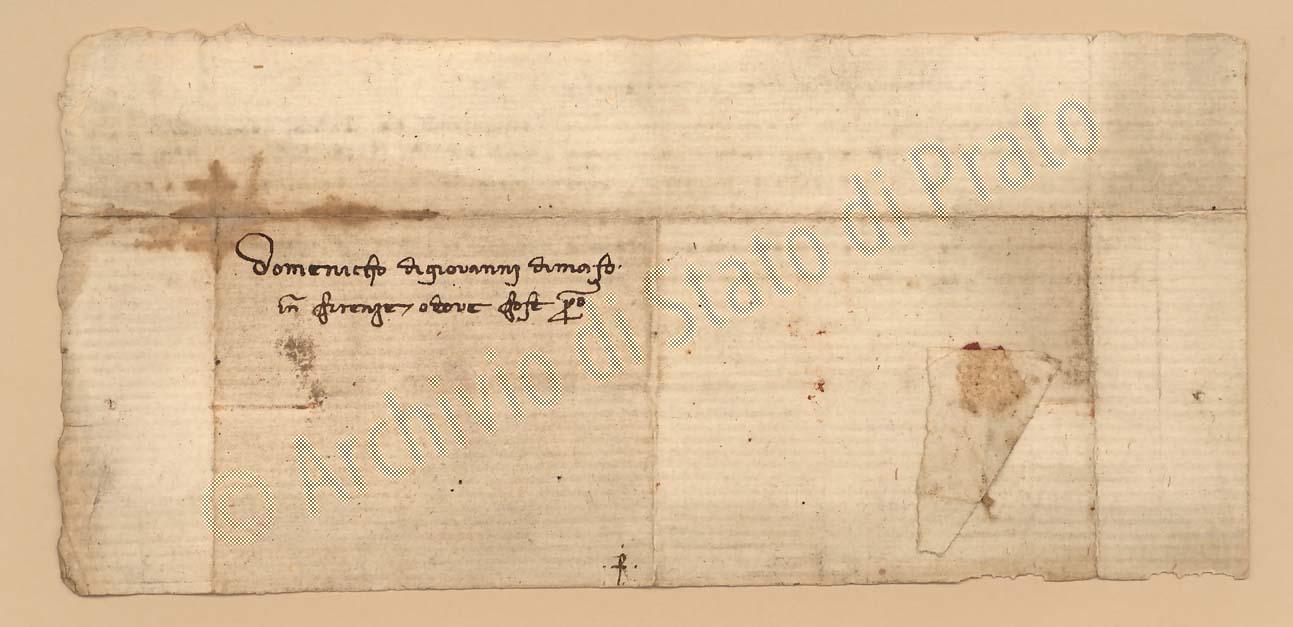 Domenicho di giovanni di maso
in firenze o dove fosse pro
© Archivio di Stato di Prato